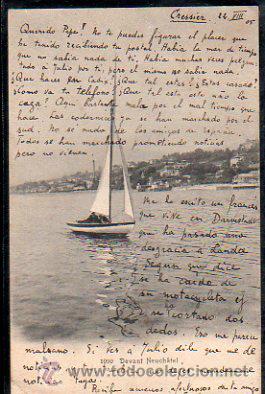 Cressier, 22 VIII 05
Querido Pepe! No te puedes figurar el placer que
he tenido recibiendo tu postal. Habia la mar de tiempo
que no sabia nada de ti. Habia muchas veces pregun-
tado a por ti, pero el mismo no sabia nada.
¿Que haces por Cadix? ¿Que tal estas? ¿Estas casado?
¿Como va tu telefono? ¿Que tal esta este año la
caza? Aqui bastante mala por el mal tiempo que
hace. Las codornices ya se han marchado por el
sud. No se nada de los amigos de España.
Todos se han marchado prometiendo noticias
pero no vienen
Me ha escrito un francés
que vive en Darmstadt
que ha pasado una
desgracia a Landa
Segun que dice
se ha caido de
su motocicleta y
se cortaron dos
dedos. Eso me parece
malsano. Si ves a Julio dile que me de
noticias
noticias tuyas.
Recibe afectuosos de tu amigo
1090 Devant Neuchâtel
www.todocoleccion.net